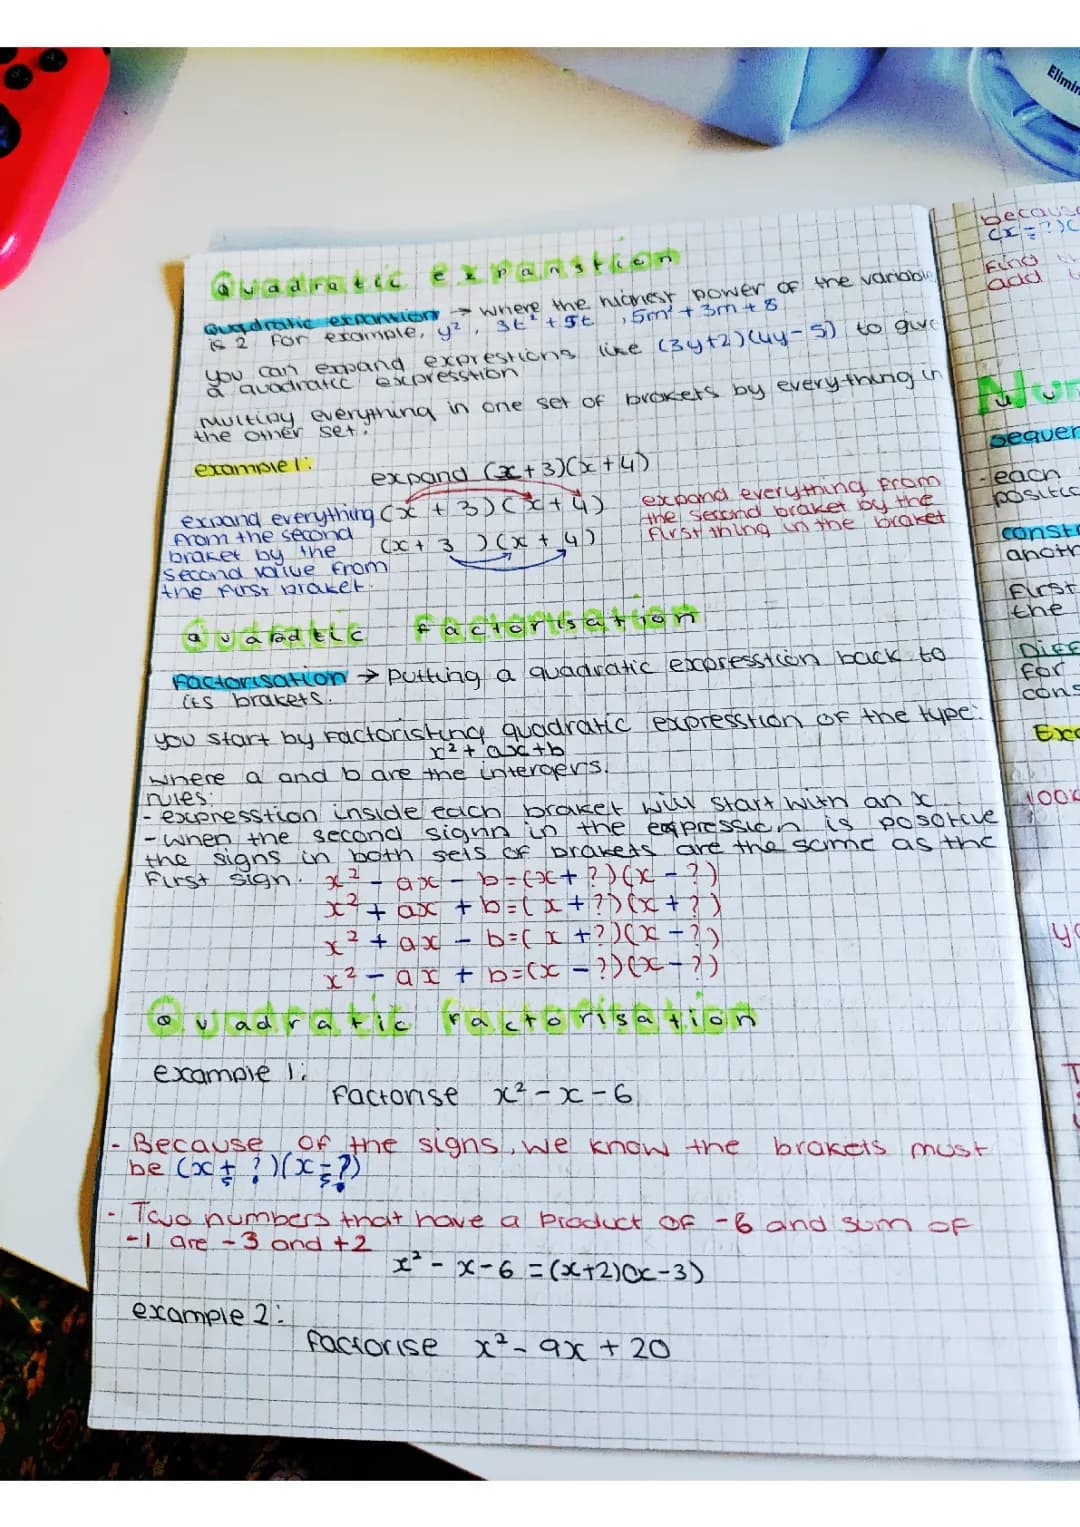 Quadratic expanstion
Quadratic expantion → where the highest power of the variable
is 2 For example, y², 3t² + 5t, 5m² + 3m + 8
you can expand exprestions like (3y+2)(4y-5) to give
a quadratic expresstion
Multipy everything in one set of brakets by everything in
the other set.
example 1:
expand (x+3)(x+4)
expand everything
from the second
braket by the
second value from
the first braket.
(x + 3)(x + 4)
(x + 3)(x + 4)
expand everything from
the second braket by the
first thing in the braket
Quaratic Factorisation
Factorisation → Putting a quadratic expresstion back to
its brakets.
you start by Factoristing quadratic expresstion of the type:
x² + ax + b
where a and b are the intergers.
rules:
- expresstion inside each braket will start with an x
- when the second signn in the expression is posotive
the signs in both sets of brakets are the same as the
First sign. x² - ax - b = (x + ?)(x - ?)
x² + ax + b = (x + ?)(x + ?)
x² + ax - b = (x + ?)(x - ?)
x² - ax + b = (x - ?)(x - ?)
Quadratic Factorisation
example 1:
Factorise x² - x - 6
- Because of the signs, we know the brakets must
be (x + ?)(x - ?)
- Two numbers that have a product of -6 and sum of
-1 are -3 and +2
x² - x - 6 = (x+2)(x-3)
example 2:
Factorise x² - 9x + 20
Elimin
because
Find
add
Num
sequen
- each
positio
const
anoth
First
the
Diff
For
cons
Exa
100
yo